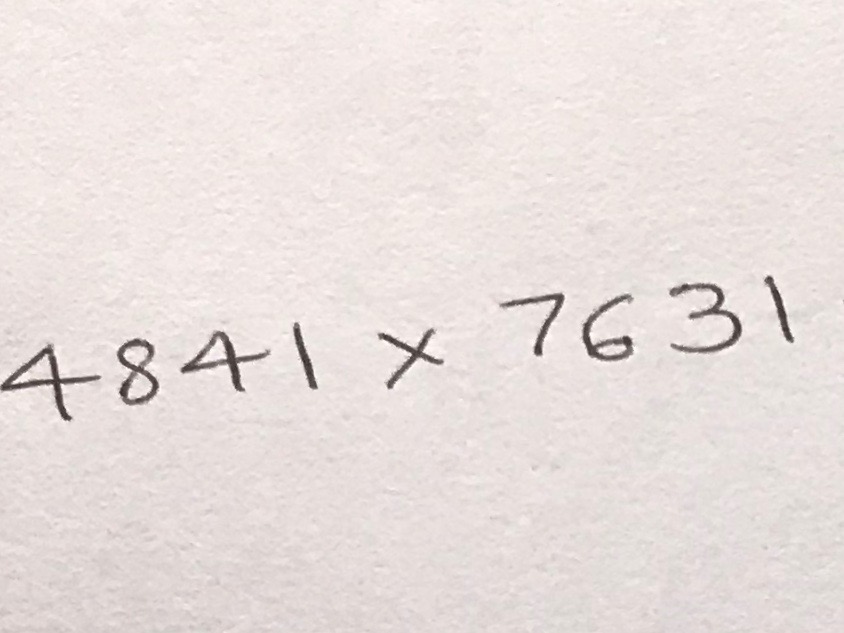 4841 × 7631